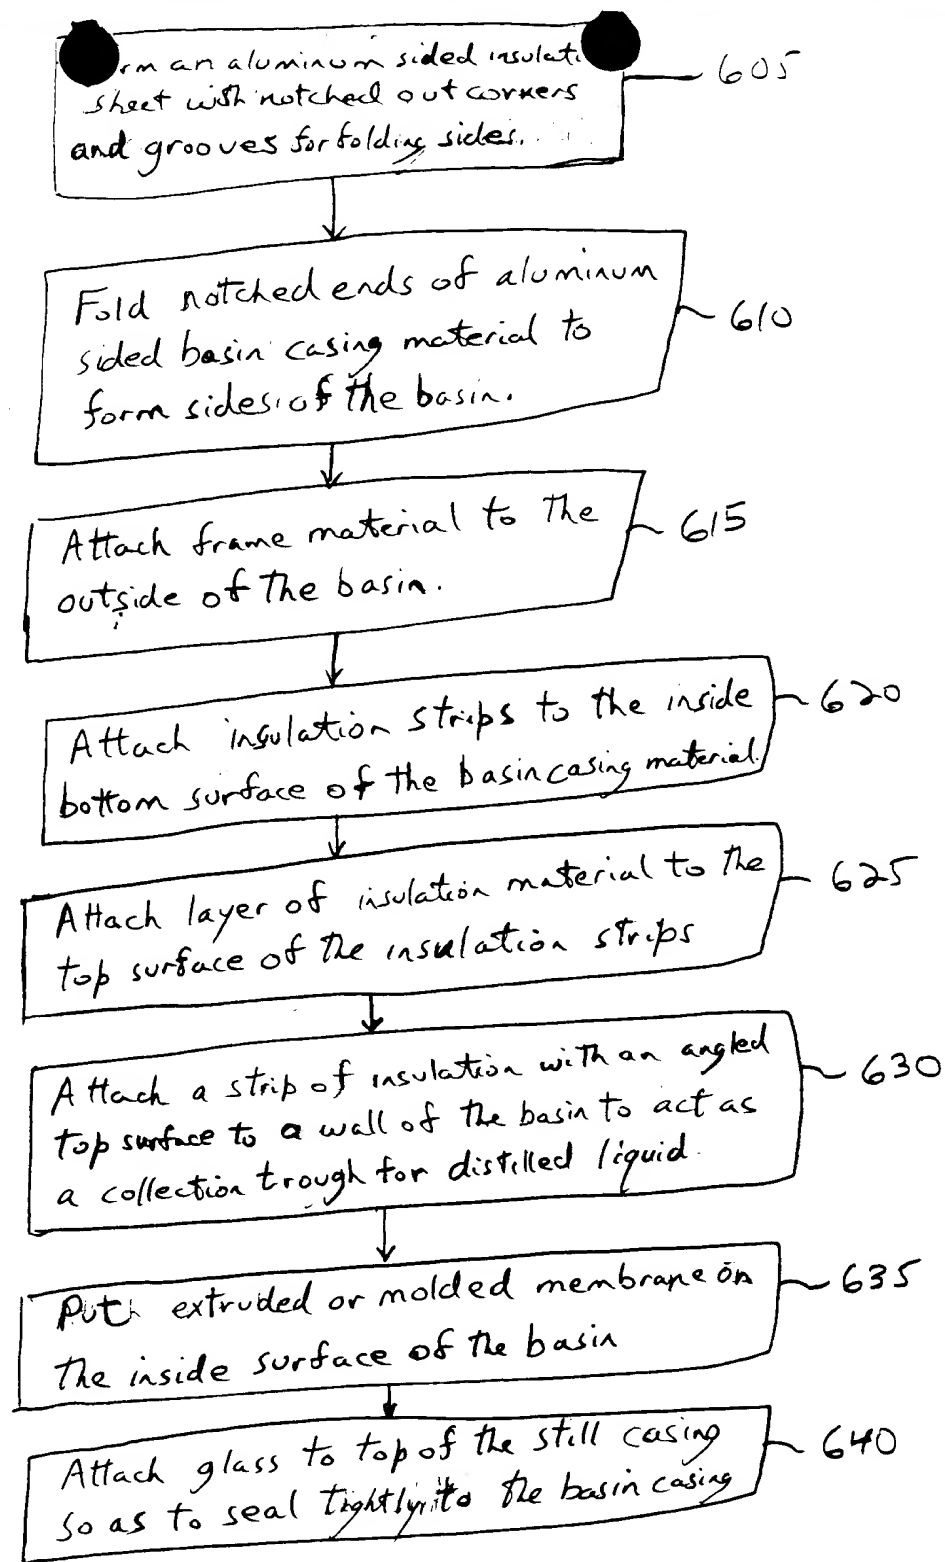 rm an aluminum sided insulati
sheet with notched out corners
and grooves for folding sides.
605
Fold notched ends of aluminum
sided basin casing material to
form sides of the basin.
610
Attach frame material to the
outside of the basin.
615
Attach insulation strips to the inside
bottom surface of the basin casing material.
620
Attach layer of insulation material to the
top surface of the insulation strips
625
Attach a strip of insulation with an angled
top surface to a wall of the basin to act as
a collection trough for distilled liquid.
630
Put extruded or molded membrane on
the inside surface of the basin
635
Attach glass to top of the still casing
so as to seal tightly to the basin casing
640